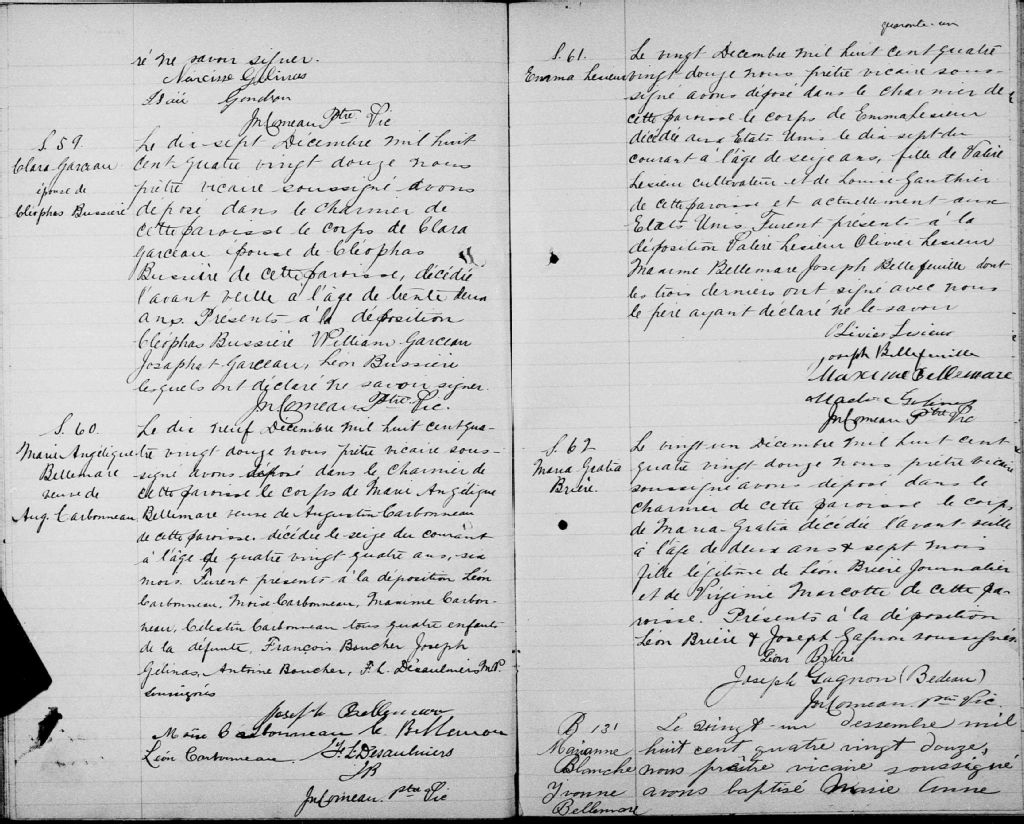 ré ne savoir signer.
Narcisse Gelinas
Gendron
Jn Comeau Ptre Vic
S. 59.
Clara Garceau
épouse de
Cléophas Bussière
Le dix-sept Décembre mil huit
cent quatre vingt douze nous
prêtre vicaire soussigné avons
déposé dans le charnier de
cette paroisse le corps de Clara
Garceau épouse de Cléophas
Bussière de cette paroisse, décédée
l'avant veille à l'âge de trente deux
ans. Présents à la déposition
Cléophas Bussière William Garceau
Josaphat Garceau, Léon Bussière
lesquels ont déclaré ne savoir signer.
Jn Comeau Ptre Vic.
S. 60.
Marie Angélique
Bellemare
veuve de
Aug. Carbonneau
Le dix neuf Décembre mil huit cent qua-
tre vingt douze nous prêtre vicaire sous-
signé avons déposé dans le charnier de
cette paroisse le corps de Marie Angélique
Bellemare veuve de Augustin Carbonneau
de cette paroisse. décédée le seize du courant
à l'âge de quatre vingt quatre ans, six
mois. Furent présents à la déposition Léon
Carbonneau, Moise Carbonneau, Maxime Carbon-
neau, Célestin Carbonneau tous quatre enfants
de la défunte, François Boucher Joseph
Gelinas, Antoine Boucher, F. L. Désaulniers M.P.
soussignés
Joseph
Moïse Carbonneau
Léon Carbonneau F. L. Desaulniers
Jn Comeau. ptre Vic
quarante-un
S. 61.
Emma Lesieur
Le vingt Décembre mil huit cent quatre
vingt douze nous prêtre vicaire sous-
signé avons déposé dans le charnier de
cette paroisse le corps de Emma Lesieur
décédée aux Etats Unis le dix sept du
courant à l'âge de seize ans, fille de Valère
Lesieur cultivateur et de Louise Gauthier
de cette paroisse et actuellement aux
Etats Unis. Furent présents à la
déposition Valère Lesieur Olivier Lesieur
Maxime Bellemare Joseph Bellefeuille dont
les trois derniers ont signé avec nous
le père ayant déclaré ne le savoir
Olivier Lesieur
Joseph Bellefeuille
Maxime Bellemare
Gelinas
Jn Comeau Ptre Vic
S. 62
Maria Gratia
Brière.
Le vingt-un Décembre mil huit cent
quatre vingt douze nous prêtre vicaire
soussigné avons déposé dans le
charnier de cette paroisse le corps
de Maria-Gratia décédée l'avant veille
à l'âge de deux ans & sept mois
fille légitime de Léon Brière Journalier
et de Virginie Marcotte de cette pa-
roisse. Présents à la déposition
Léon Brière & Joseph Gagnon soussignés
Léon Brière
Joseph Gagnon (Bedeau)
Jn Comeau ptre Vic.
B 131
Marianne
Blanche
Yvonne
Bellemare
Le vingt-un dessembre mil
huit cent quatre vingt douze,
nous prêtre vicaire soussigné
avons baptisé Marie Anne